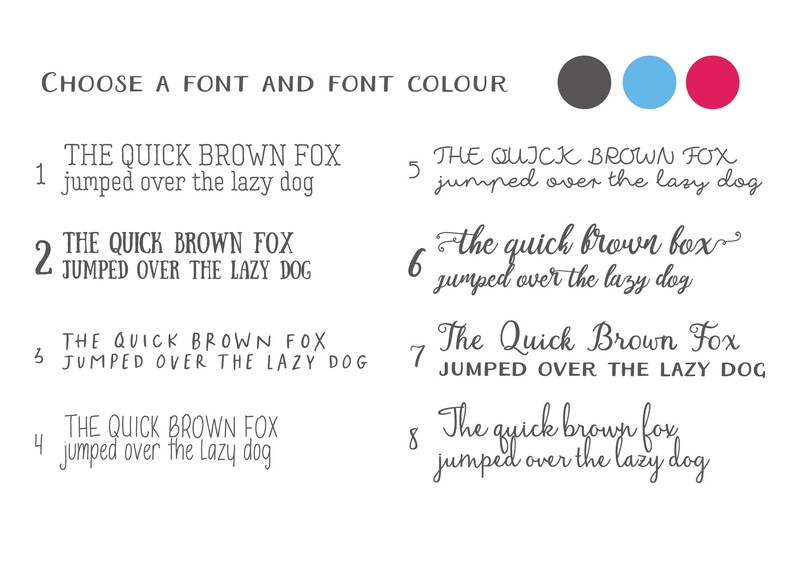 CHOOSE A FONT AND FONT COLOUR
1 THE QUICK BROWN FOX
jumped over the lazy dog
2 THE QUICK BROWN FOX
JUMPED OVER THE LAZY DOG
3 THE QUICK BROWN FOX
JUMPED OVER THE LAZY DOG
4 THE QUICK BROWN FOX
jumped over the Lazy dog
5 THE QUICK BROWN FOX
jumped over the lazy dog
6 the quick brown box
jumped over the lazy dog
7 The Quick Brown Fox
JUMPED OVER THE LAZY DOG
8 The quick brown fox
jumped over the lazy dog